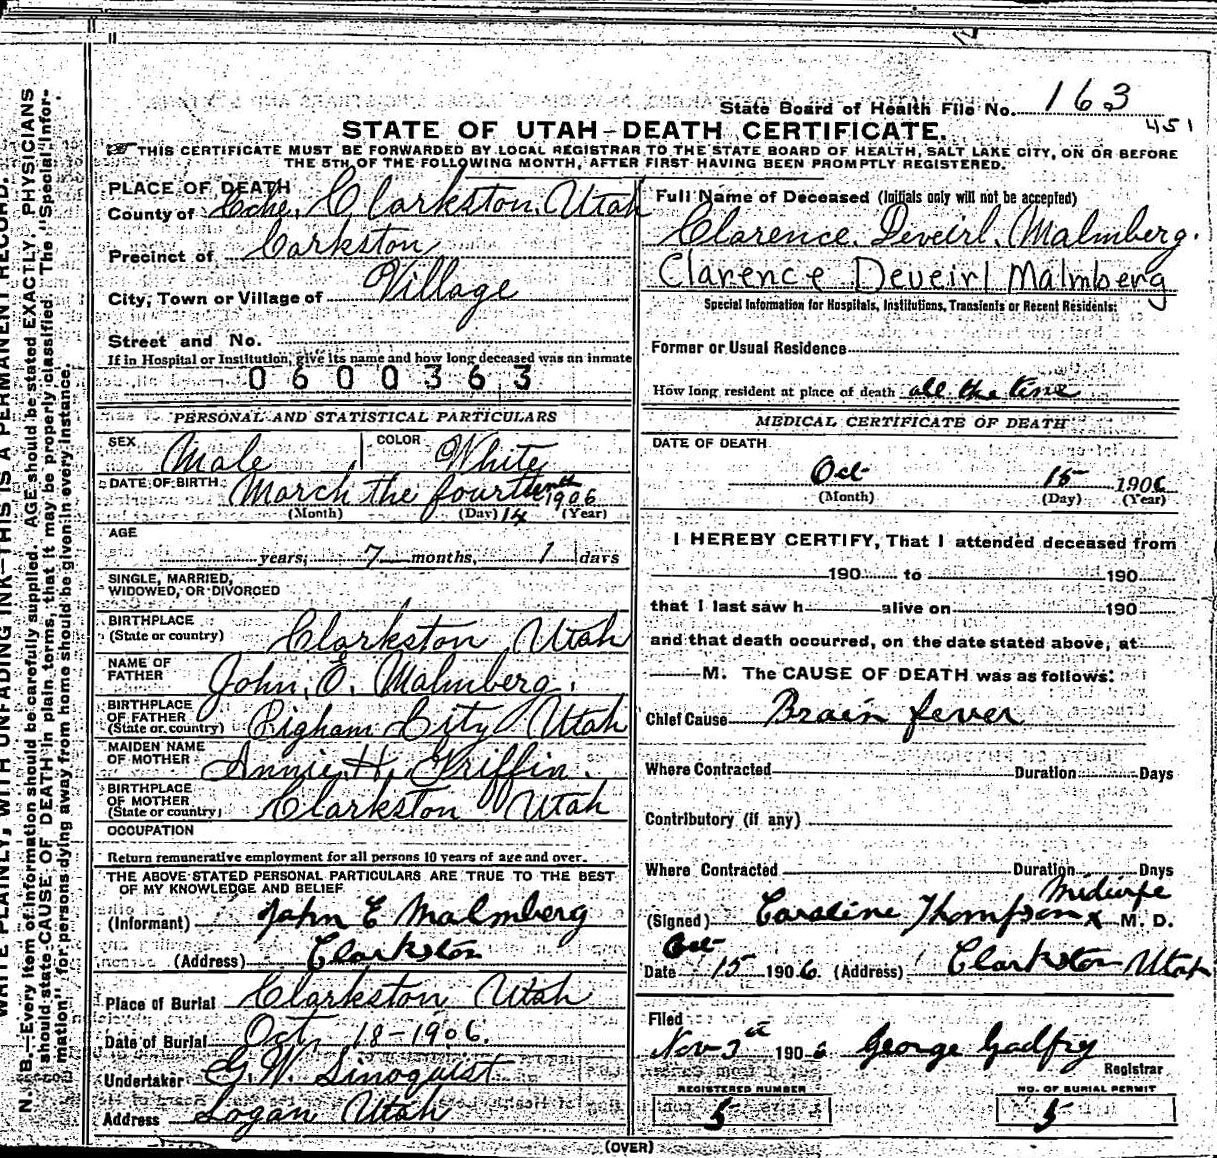 State Board of Health File No. 163
451
STATE OF UTAH—DEATH CERTIFICATE.
THIS CERTIFICATE MUST BE FORWARDED BY LOCAL REGISTRAR TO THE STATE BOARD OF HEALTH, SALT LAKE CITY, ON OR BEFORE
THE 5TH OF THE FOLLOWING MONTH, AFTER FIRST HAVING BEEN PROMPTLY REGISTERED.
PLACE OF DEATH
County of Cche, Clarkston, Utah
Precinct of Carkston
City, Town or Village of Village
Street and No.
If in Hospital or Institution, give its name and how long deceased was an inmate
0600363
PERSONAL AND STATISTICAL PARTICULARS
SEX Male COLOR White
DATE OF BIRTH March the fourteenth 1906
(Month) (Day) 14 (Year)
AGE
years, 7 months, 1 days
SINGLE, MARRIED,
WIDOWED, OR DIVORCED
BIRTHPLACE
(State or country) Clarkston Utah
NAME OF
FATHER John, E. Malmberg.
BIRTHPLACE
OF FATHER
(State or country) Bigham City Utah
MAIDEN NAME
OF MOTHER Annie, H. Griffin.
BIRTHPLACE
OF MOTHER
(State or country) Clarkston Utah
OCCUPATION
Return remunerative employment for all persons 10 years of age and over.
THE ABOVE STATED PERSONAL PARTICULARS ARE TRUE TO THE BEST
OF MY KNOWLEDGE AND BELIEF
(Informant) John E Malmberg
(Address) Clarkston
Place of Burial Clarkston Utah
Date of Burial Oct, 18-1906.
Undertaker G. W. Linoquist
Address Logan Utah
Full Name of Deceased (Initials only will not be accepted)
Clarence. Deveirl. Malmberg.
Clarence Deveirl Malmberg
Special Information for Hospitals, Institutions, Transients or Recent Residents:
Former or Usual Residence
How long resident at place of death all the time
MEDICAL CERTIFICATE OF DEATH
DATE OF DEATH
Oct 15 1906
(Month) (Day) (Year)
I HEREBY CERTIFY, That I attended deceased from
190 to 190
that I last saw h alive on 190
and that death occurred, on the date stated above, at
M. The CAUSE OF DEATH was as follows:
Chief Cause Brain fever
Where Contracted Duration Days
Contributory (if any)
Where Contracted Duration Days
Midwife
(Signed) Caroline Thompson x M. D.
Oct
Date 15 1906 (Address) Clarkston Utah
Filed
Nov 3 1906 George Godfry
Registrar
REGISTERED NUMBER
5
NO. OF BURIAL PERMIT
5
(OVER)
WRITE PLAINLY, WITH UNFADING INK—THIS IS A PERMANENT RECORD.
N. B.—Every item of information should be carefully supplied. AGE should be stated EXACTLY. PHYSICIANS
should state CAUSE OF DEATH in plain terms, that it may be properly classified. The "Special Infor-
mation" for persons dying away from home should be given in every instance.